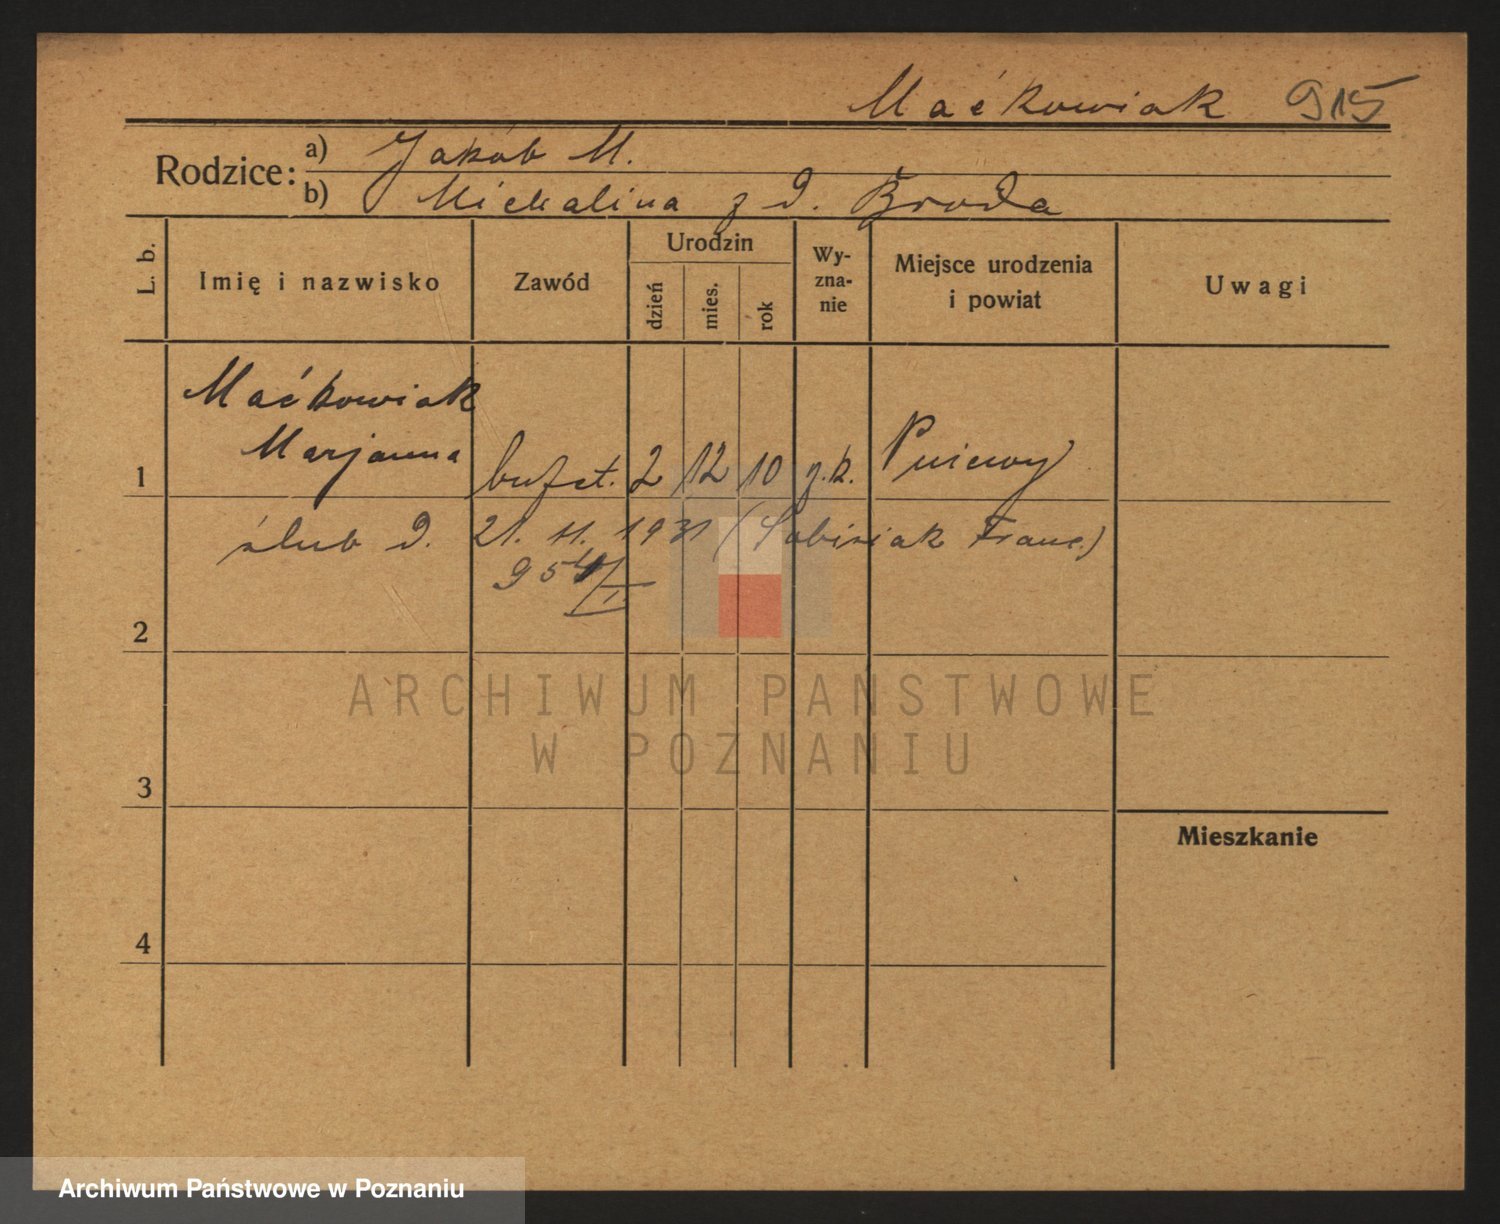 Maćkowiak 915
Rodzice: a) Jakób M.
b) Michalina z d. Broda
L. b. Imię i nazwisko Zawód Urodzin dzień mies. rok Wy-zna-nie Miejsce urodzenia i powiat Uwagi
Maćkowiak
1 Marjanna bufet. 2 12 10 r.k. Pniewy
ślub d. 21. 11. 1931 (Sobisiak Franc.)
2
ARCHIWUM PAŃSTWOWE
W POZNANIU
3
Mieszkanie
4
Archiwum Państwowe w Poznaniu